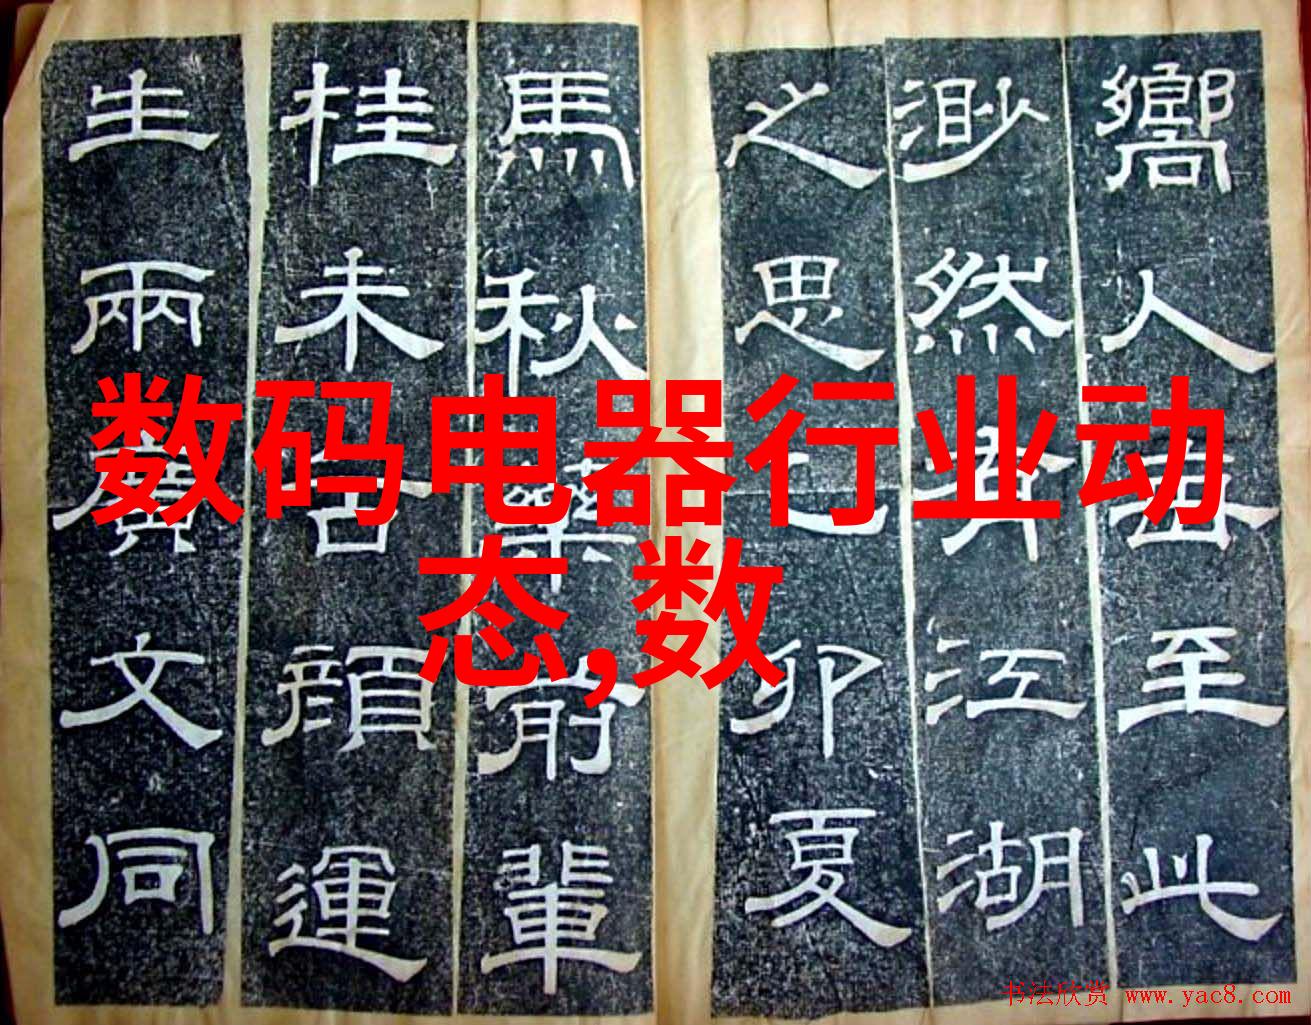 嚮人至此
渺然有江湖
之思卯夏
馬秋藥前輩
桂未谷顔運
生兩廣文同
数码电器行业动
态,数
书法欣赏 www.yac8.com